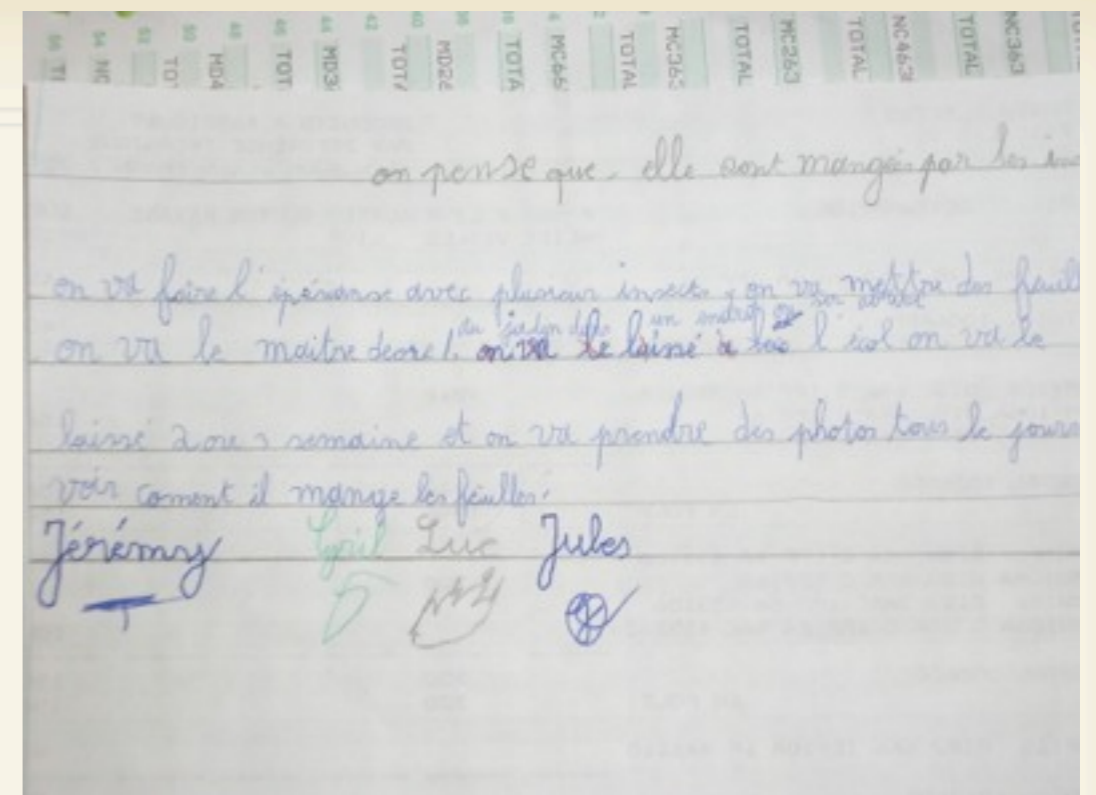 54 NC
52
50 TOT
48 MD4
46 TOT
44 MD3
42
40 TOTA
38 MD2
TOTA
MC66
TOTAL
MC363
TOTAL
MC263
TOTAL
NC463
TOTAL
NC363
on pense que elle sont mangées par les ins
on va faire l' avec plusieur insects, on va mettre des feuill
du jadyn dans un endroi
on va le maitre deore l. on va le laissé a l'écol on va le
laissé 2 ou 3 semaine et on va prendre des photos tous le jours
voir coment il mange les feuilles.
Jérémy Cyril Luc Jules